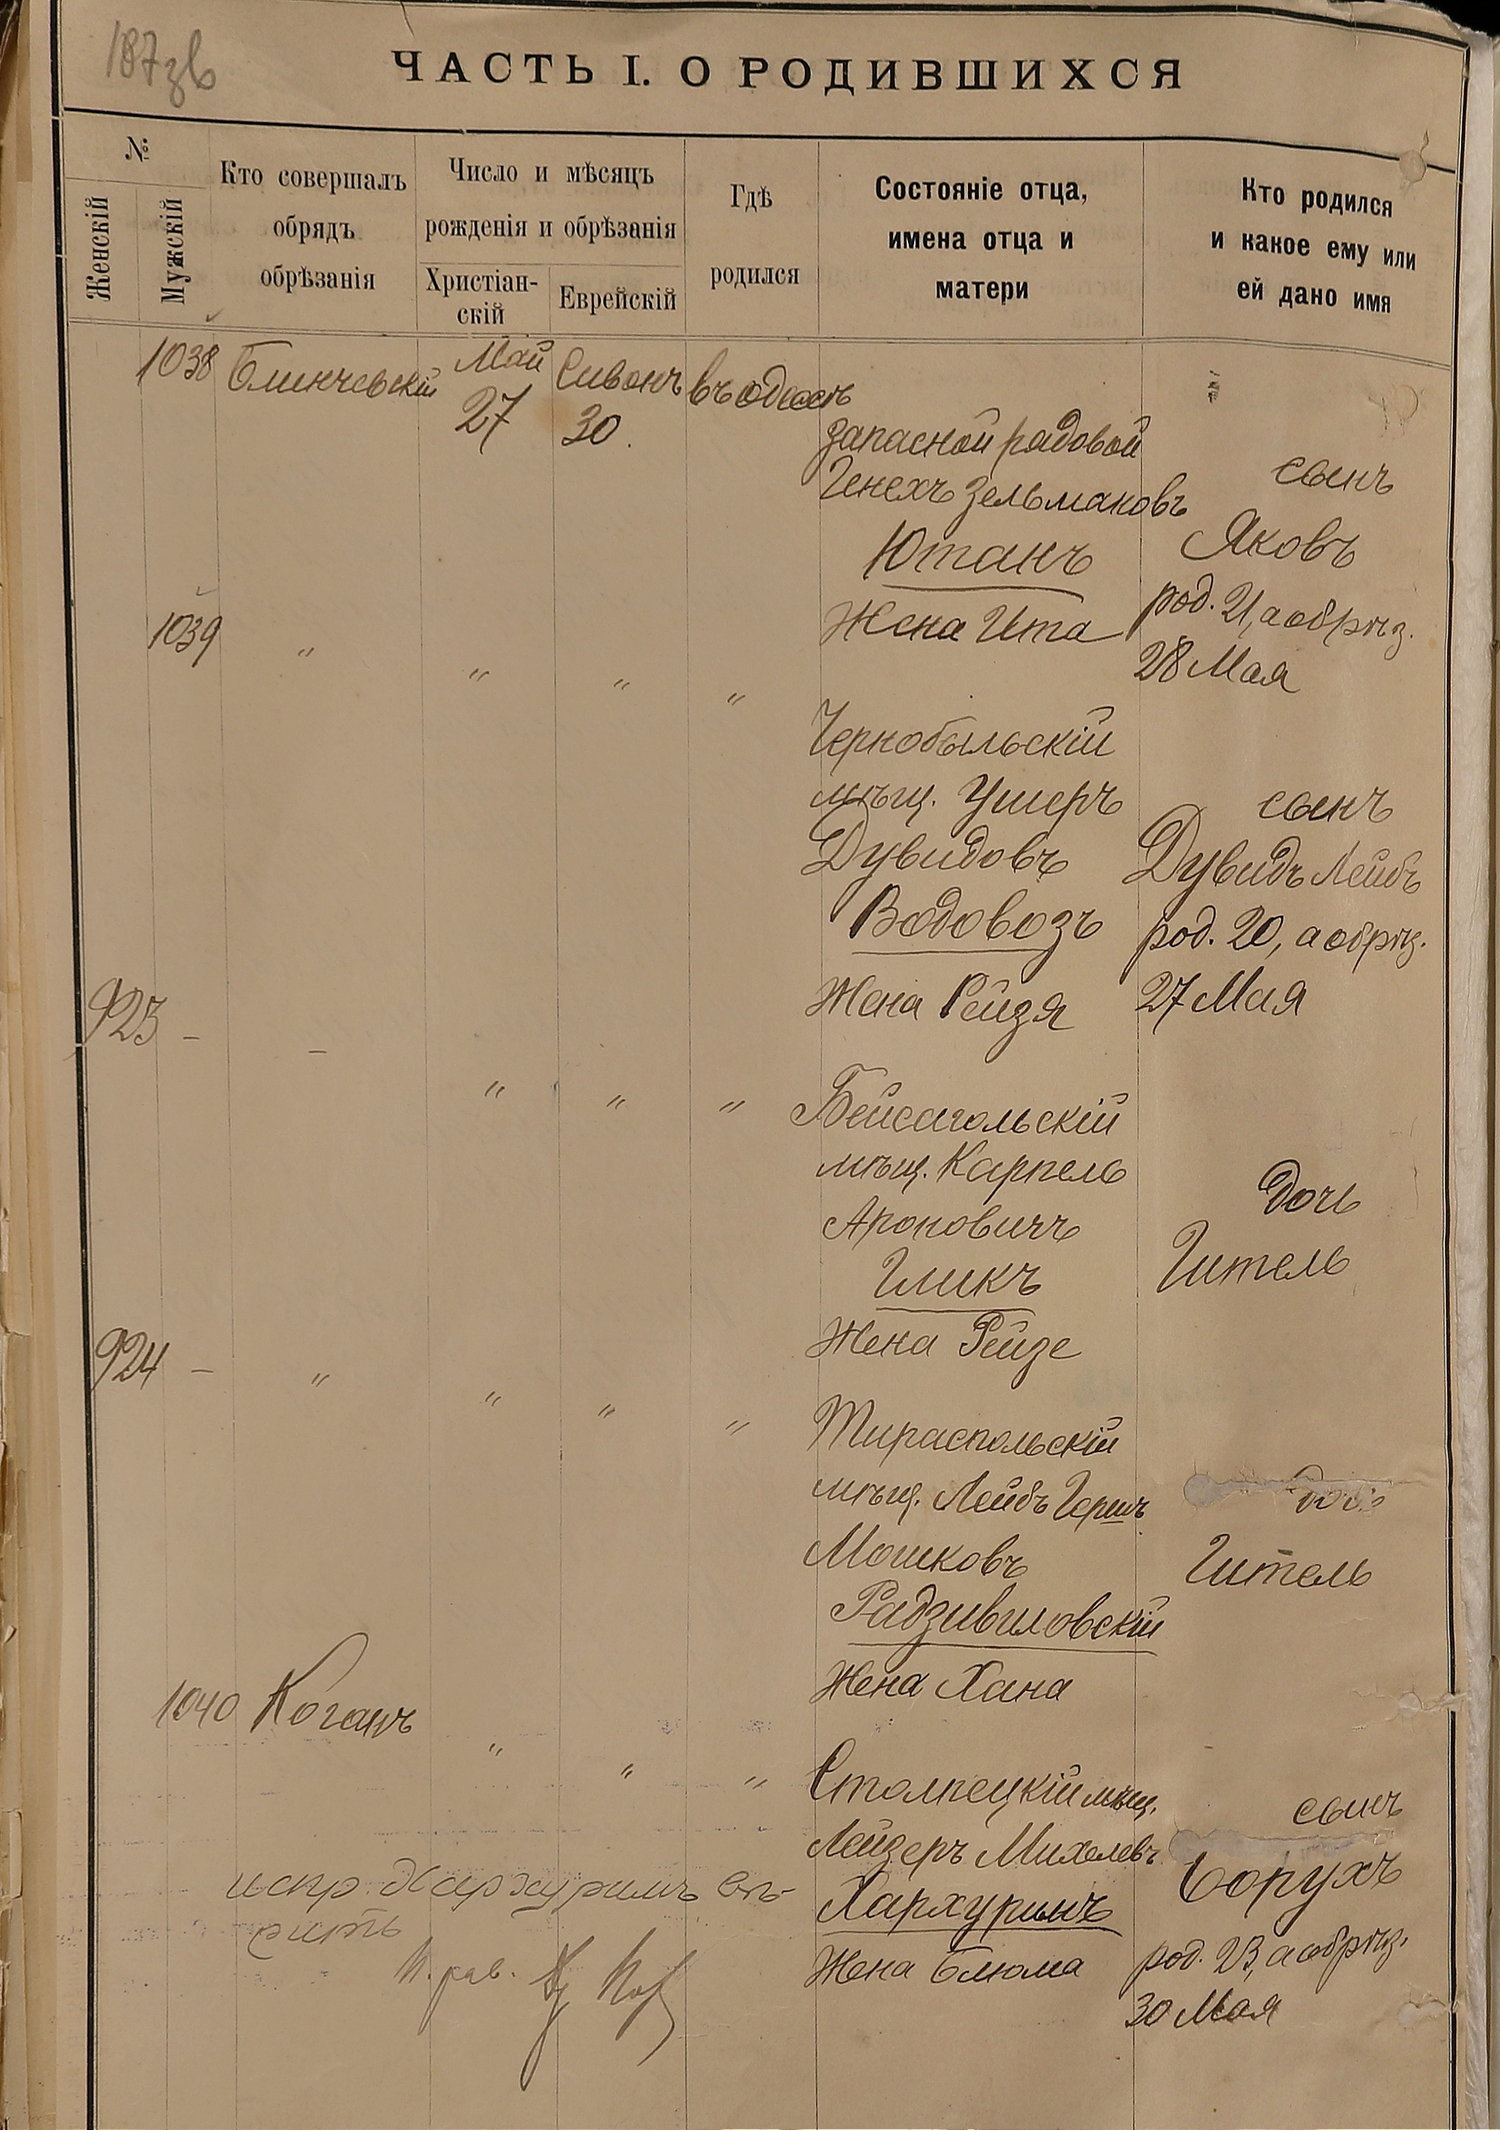 187 зв
ЧАСТЬ I. О РОДИВШИХСЯ
№
Женскій
Мужскій
Кто совершалъ
обрядъ
обрѣзанія
Число и мѣсяцъ
рожденія и обрѣзанія
Христіан-
скій
Еврейскій
Гдѣ
родился
Состояніе отца,
имена отца и
матери
Кто родился
и какое ему или
ей дано имя
1038 Блинчевскій Май 27 Сивонъ 30. въ Одессѣ
запасной рядовой
Генехъ Зельмановъ
Ютанъ
Жена Ита
сынъ
Яковъ
род. 21, а обрѣз.
28 Мая
1039 " " " "
Чернобыльскій
мѣщ. Ушеръ
Дувидовъ
Водовозъ
Жена Рейзя
сынъ
Дувидъ Лейбъ
род. 20, а обрѣз.
27 Мая
923 - - " " "
Бейсагольскій
мѣщ. Карпель
Ароновичъ
Гликъ
Жена Рейзе
дочь
Гитель
924 - " " " "
Тираспольскій
мѣщ. Лейбъ Гершъ
Мошковъ
Радзивиловскій
Жена Хана
дочь
Гитель
1040 Коганъ " " "
Столпецкій мѣщ.
Лейзеръ Михелевъ
Хархуримъ
Жена Блюма
сынъ
Борухъ
род. 23, а обрѣз.
30 Мая
испр. Хархуримъ вѣ-
рить
И. рав.